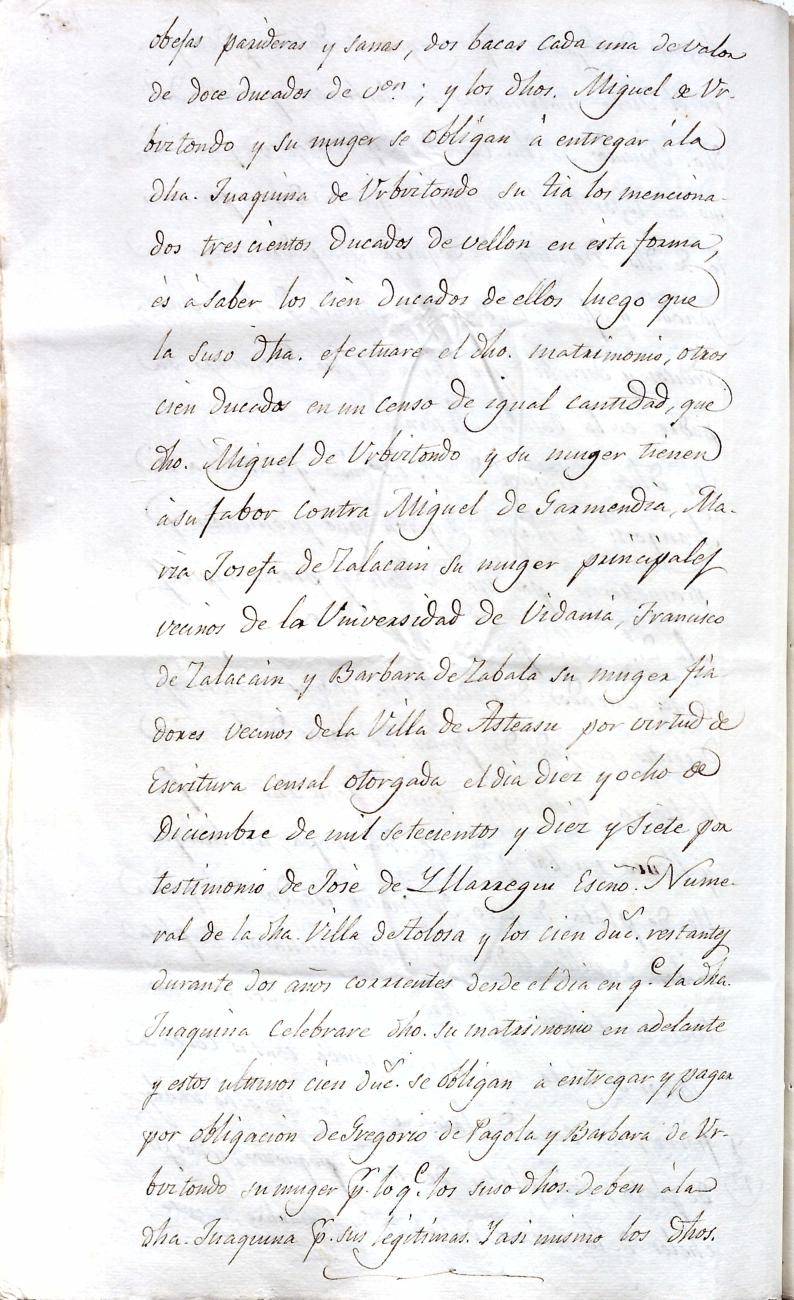 obejas parideras y sanas, dos bacas cada una de valor
de doce ducados de von; y los dhos. Miguel de Ur-
bvitondo y su muger se obligan à entregar à la
dha. Juaquina de Urbvitondo su tia los menciona-
dos trescientos ducados de vellon en èsta forma,
ès à saber los cien ducados de ellos luego que
la suso dha. efectuare el dho. matrimonio, otros
cien ducados en un censo de igual cantidad, que
dho. Miguel de Urbvitondo y su muger tienen
à su fabor contra Miguel de Garmendia, Ma-
ria Josefa de Zalacain su muger principales
vecinos de la Universidad de Vidania, Francisco
de Zalacain y Barbara de Zabala su muger fia
dores vecinos de la Villa de Asteasu por virtud de
Escritura censal otorgada el dia diez y ocho de
Diciembre de mil setecientos y diez y siete por
testimonio de Josè de Yllarregui Escño. Nume-
ral de la dha. Villa de Tolosa y los cien duc. restantes
durante dos años corrientes desde el dia en q.e la dha.
Juaquina celebrare dho. su matrimonio en adelante
y estos ultimos cien duc. se obligan à entregar y pagar
por obligacion de Gregorio de Pagola y Barbara de Ur-
bvitondo su muger p.r lo q.e los suso dhos. deben à la
dha. Juaquina p.r sus legitimas. Y asi mismo los dhos.